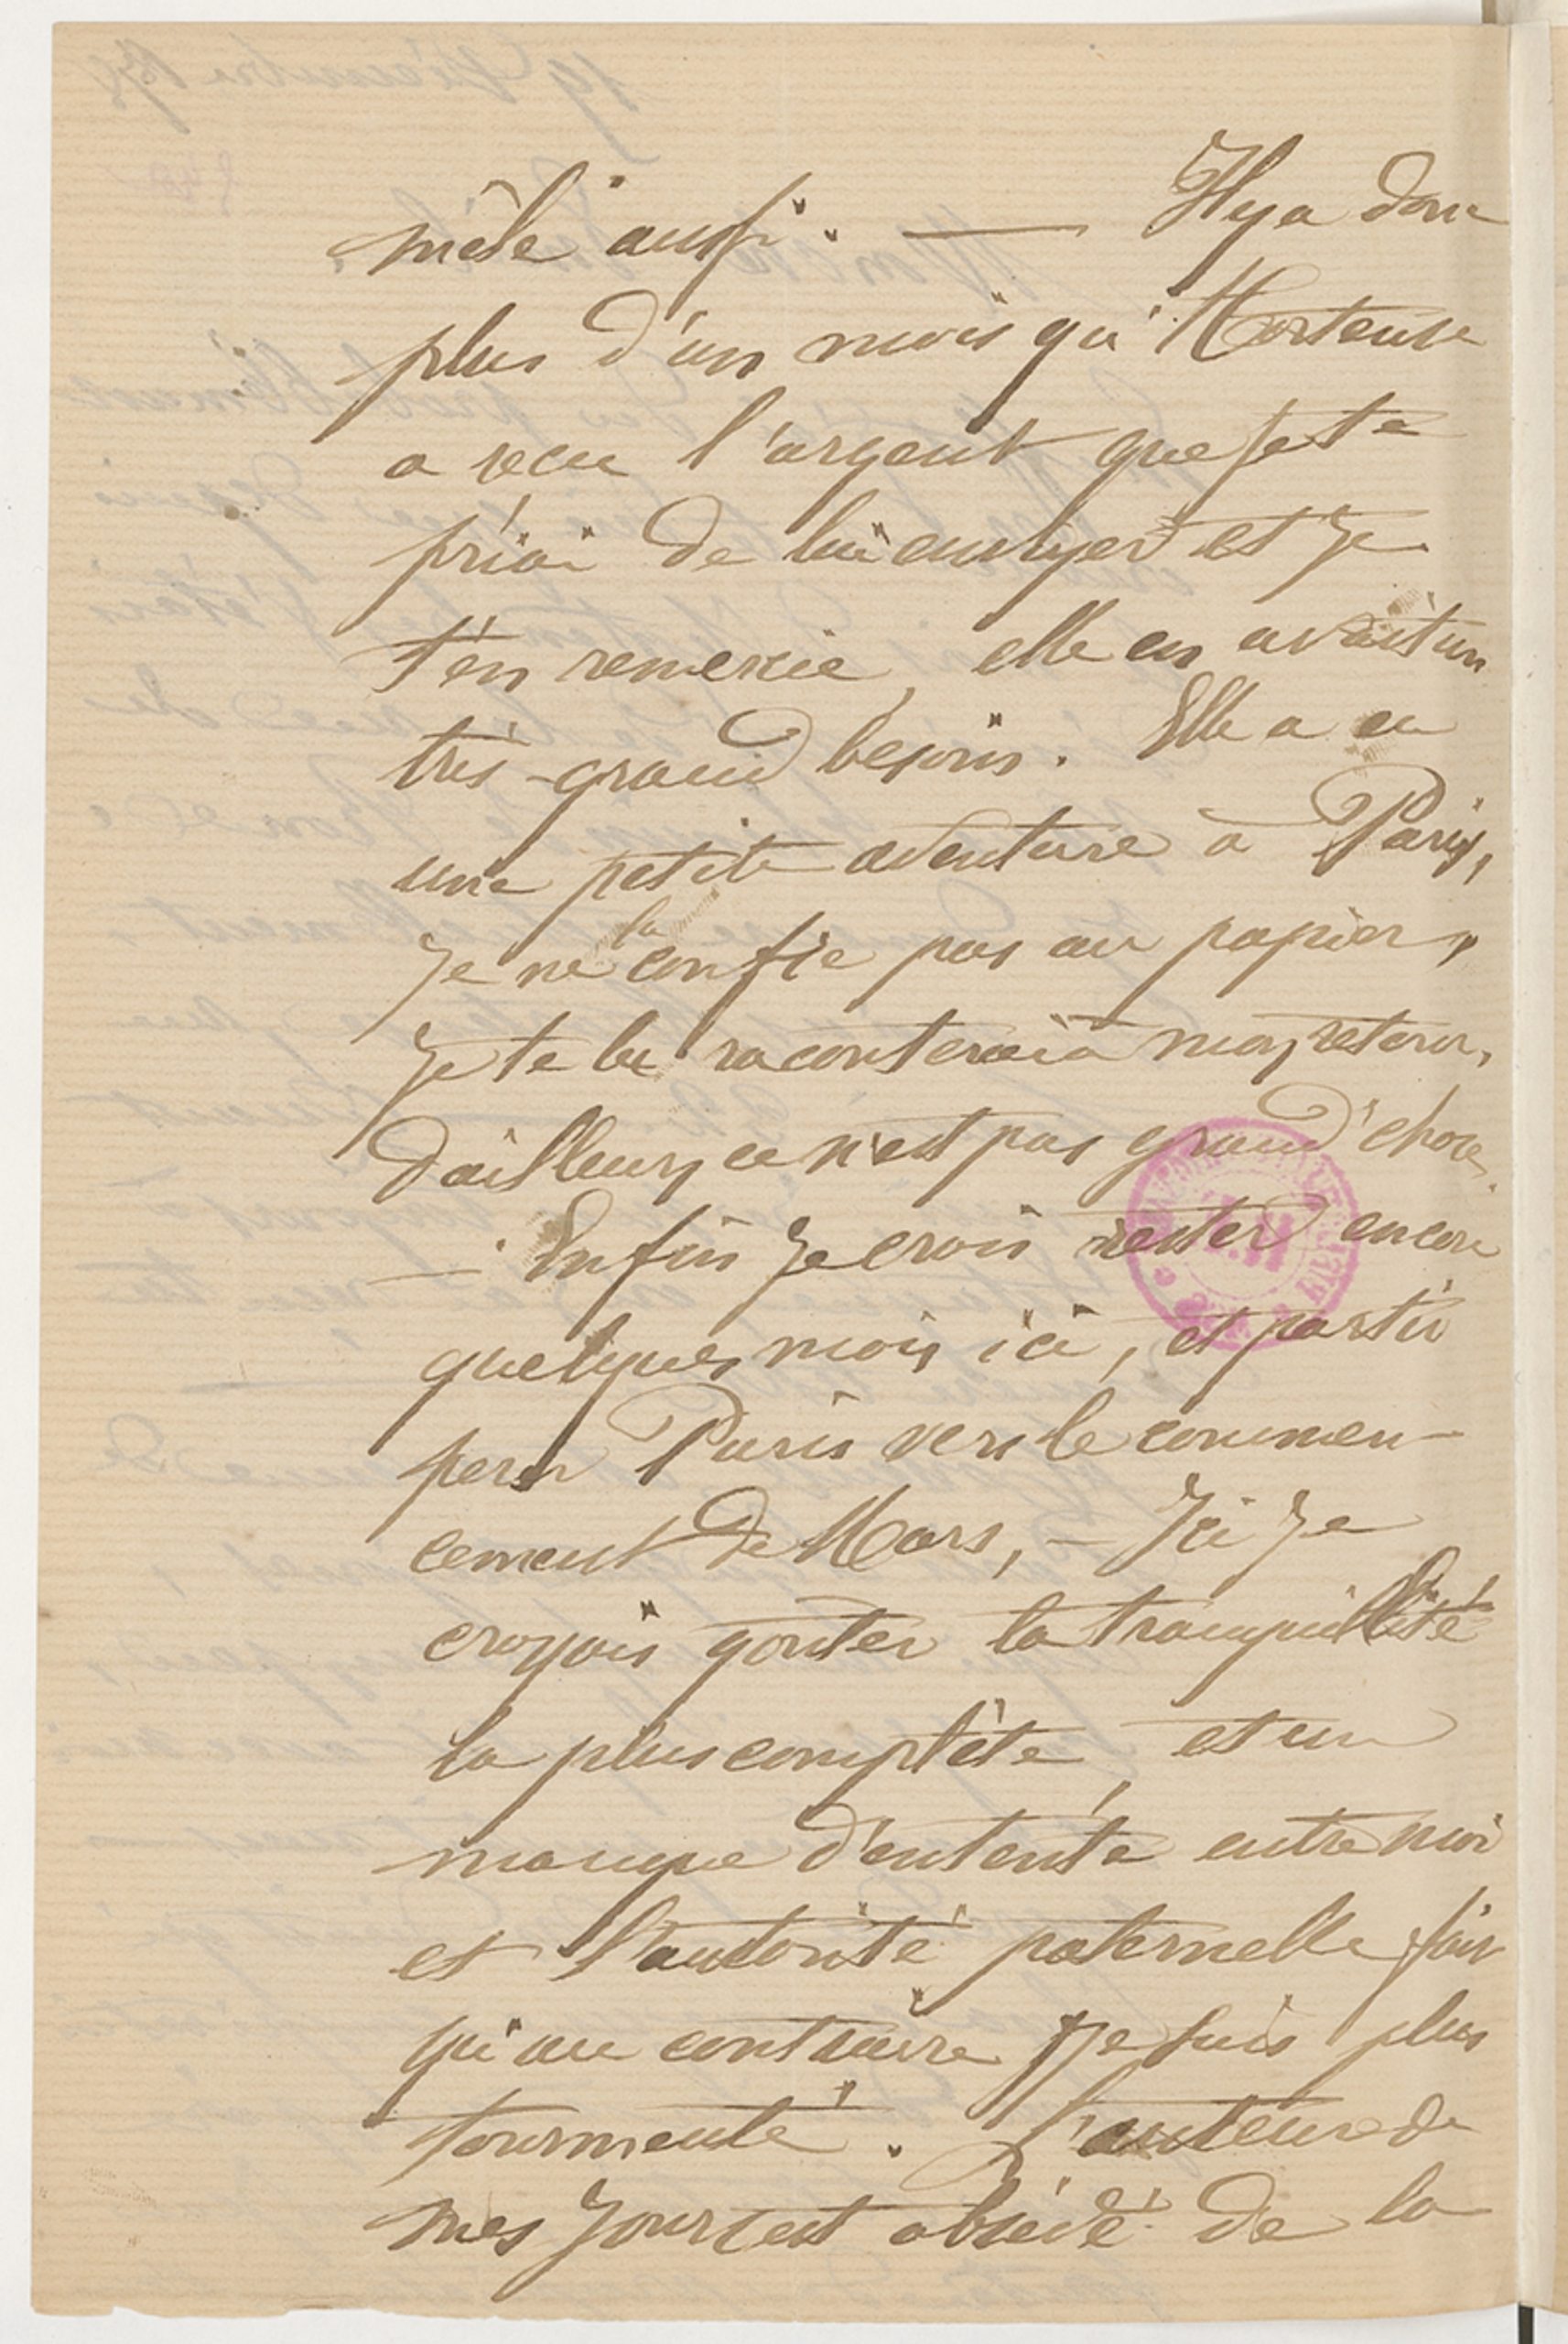 mêle aussi. — Il y a donc
plus d'un mois qu'Hortense
a reçu l'argent que je te
priai de lui envoyer et je
t'en remercie, elle en avait un
très-grand besoin. Elle a eu
une petite aventure à Paris,
Je ne la confie pas au papier,
je te la raconterai à mon retour,
d'ailleurs ce n'est pas grand'chose.
— Enfin je crois rester encore
quelques mois ici, et partir
pour Paris vers le commen-
cement de Mars, — Ici je
croyais goûter la tranquillité
la plus complète, et un
manque d'entente entre moi
et l'autorité paternelle fait
qu'au contraire je suis plus
tourmenté. L'auteur de
mes jours est obsédé de la